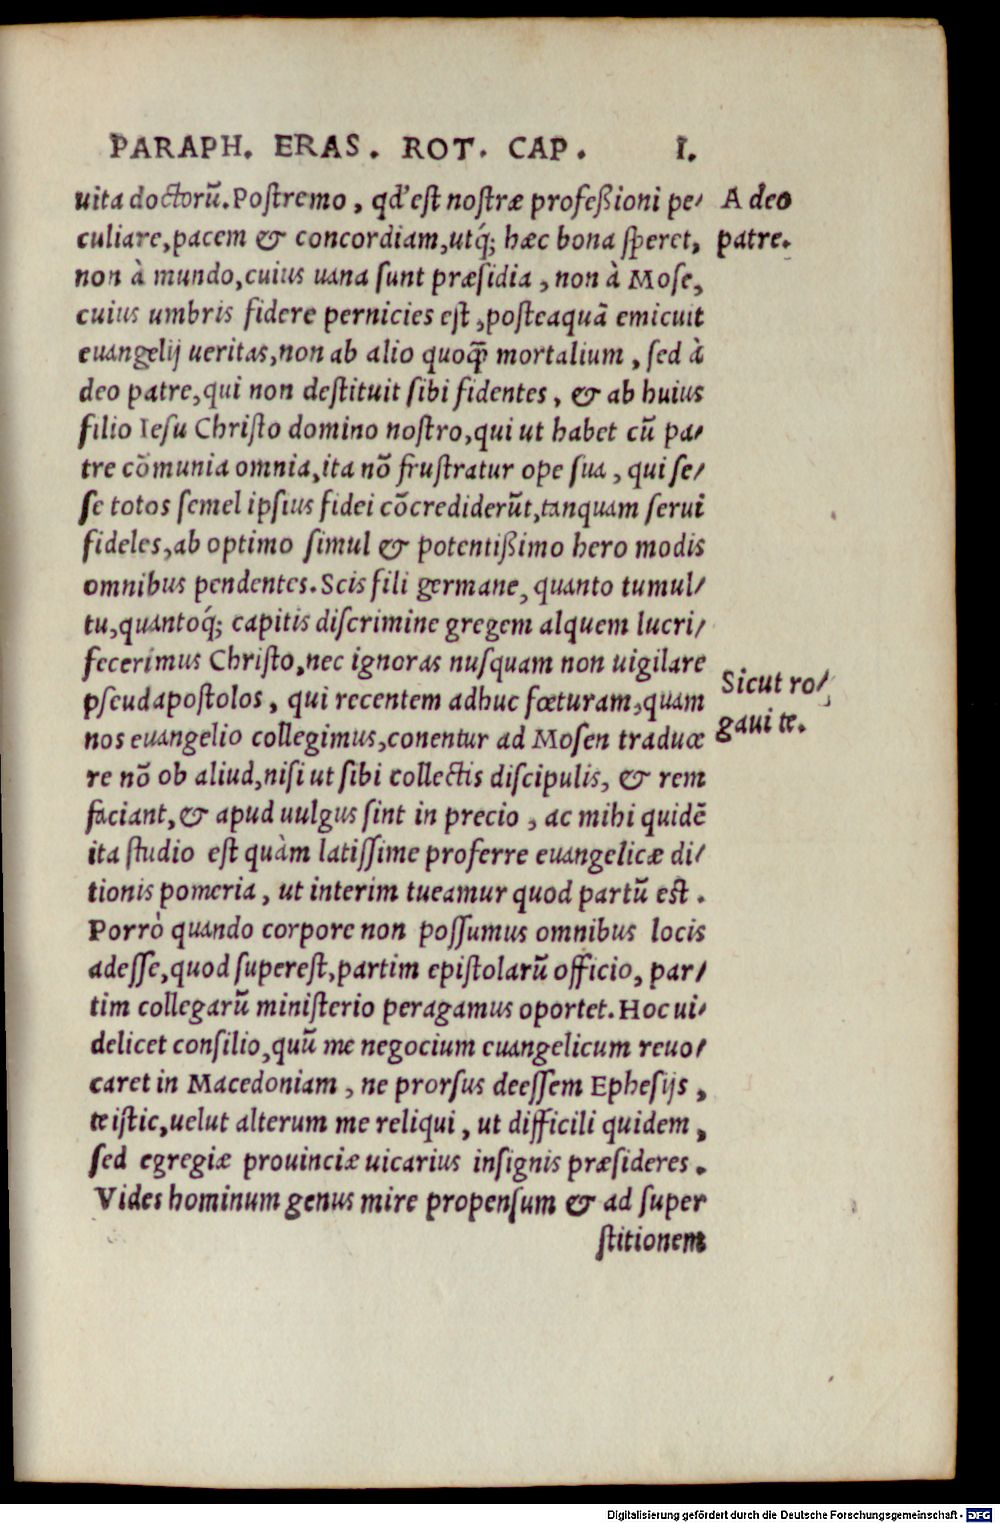 PARAPH. ERAS. ROT. CAP. I.
uita doctorũ. Postremo, qđ est nostræ profeßioni pe-
culiare, pacem & concordiam, utq́; hæc bona speret,
non à mundo, cuius uana sunt præsidia, non à Mose,
cuius umbris fidere pernicies est, posteaquã emicuit
euangelij ueritas, non ab alio quoq̃ mortalium, sed à
deo patre, qui non destituit sibi fidentes, & ab huius
filio Iesu Christo domino nostro, qui ut habet cũ pa-
tre cõmunia omnia, ita nõ frustratur ope sua, qui se-
se totos semel ipsius fidei cõcrediderũt, tanquam serui
fideles, ab optimo simul & potentißimo hero modis
omnibus pendentes. Scis fili germane, quanto tumul-
tu, quantoq́; capitis discrimine gregem alquem lucri-
fecerimus Christo, nec ignoras nusquam non uigilare
pseudapostolos, qui recentem adhuc fœturam, quam
nos euangelio collegimus, conentur ad Mosen traduce
re nõ ob aliud, nisi ut sibi collectis discipulis, & rem
faciant, & apud uulgus sint in precio, ac mihi quidẽ
ita studio est quàm latissime proferre euangelicæ di-
tionis pomeria, ut interim tueamur quod partũ est.
Porrò quando corpore non possumus omnibus locis
adesse, quod superest, partim epistolarũ officio, par-
tim collegarũ ministerio peragamus oportet. Hoc ui-
delicet consilio, quũ me negocium euangelicum reuo-
caret in Macedoniam, ne prorsus deessem Ephesijs,
te istic, uelut alterum me reliqui, ut difficili quidem,
sed egregiæ prouinciæ uicarius insignis præsideres.
Vides hominum genus mire propensum & ad super
stitionem
A deo
patre.
Sicut ro-
gaui te.
Digitalisierung gefördert durch die Deutsche Forschungsgemeinschaft - DFG